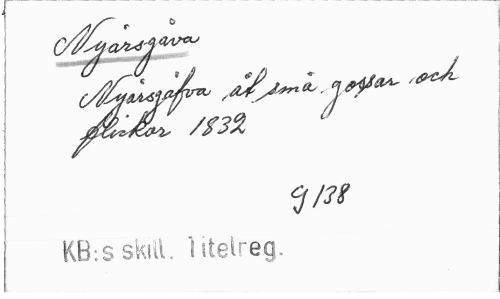 Nyårsgåva
Nyårsgåfva åt små gossar och
flickor 1832
G 138
KB:s skill. Titelreg.